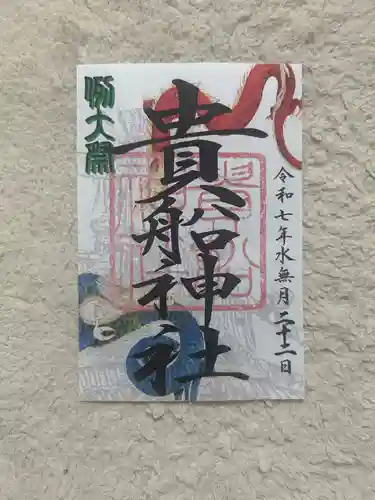 例大祭
貴船神社
令和七年水無月二十二日